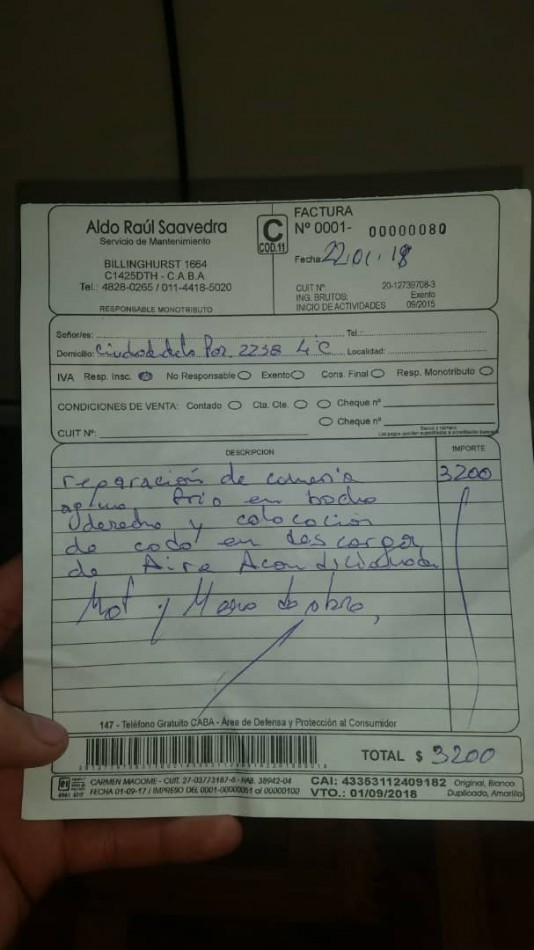 Aldo Raúl Saavedra
Servicio de Mantenimiento
BILLINGHURST 1664
C1425DTH - C.A.B.A
Tel.: 4828-0265 / 011-4418-5020
RESPONSABLE MONOTRIBUTO
C
COD.11
FACTURA
Nº 0001- 00000080
Fecha 22.01.18
CUIT Nº: 20-12739708-3
ING. BRUTOS: Exento
INICIO DE ACTIVIDADES 09/2015
Señor/es: Tel.:
Domicilio: Ciudad de la Paz 2238 4°C Localidad:
IVA Resp. Insc. No Responsable Exento Cons. Final Resp. Monotributo
CONDICIONES DE VENTA: Contado Cta. Cte. Cheque nº
Cheque nº
CUIT Nº:
DESCRIPCION IMPORTE
reparación de cañeria 3200
agua fria en
derecho y colocacion
de codo en descarga
de Aire Acondicionado
Mat y Mano de obra,
147 - Teléfono Gratuito CABA - Área de Defensa y Protección al Consumidor
TOTAL $ 3200
CARMEN MACOME - CUIT. 27-03773187-6 - HAB. 38942-04
FECHA 01-09-17 / IMPRESO DEL 0001-00000051 al 00000100
CAI: 43353112409182
VTO.: 01/09/2018
Original, Blanco
Duplicado, Amarillo